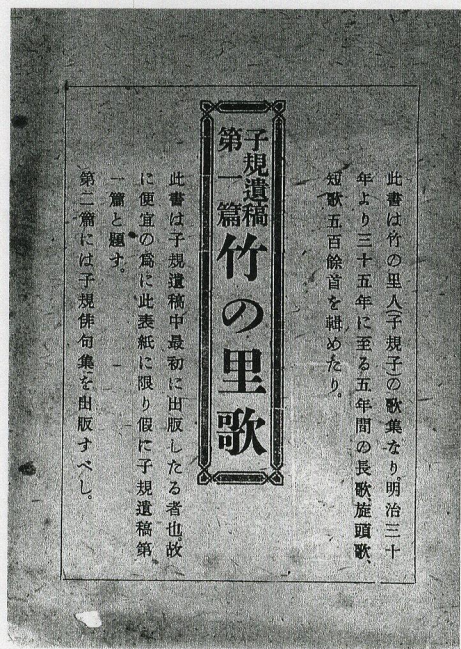 此書は竹の里人(子規子)の歌集なり。明治三十
年より三十五年に至る五年間の長歌、旋頭歌、
短歌五百餘首を輯めたり。
子規遺稿
第一篇
竹の里歌
此書は子規遺稿中最初に出版したる者也。故
に便宜の爲に此表紙に限り假に子規遺稿第
一篇と題す。
第二篇には子規俳句集を出版すべし。